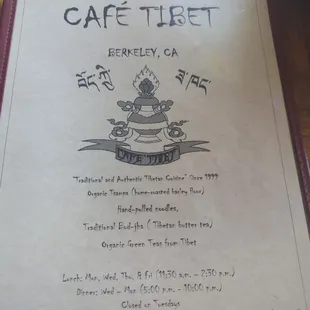 CAFÉ TIBET
BERKELEY, CA
བོད་ཀྱི་ ཟ་ཁང་
CAFE TIBET
"Traditional and Authentic Tibetan Cuisine" Since 1999
Organic Tsampa (home-roasted barley flour)
Hand-pulled noodles,
Traditional Bod-jha ( Tibetan butter tea)
Organic Green Teas from Tibet
Lunch: Mon, Wed, Thu, & Fri (11:30 a.m. - 2:30 p.m.)
Dinner: Wed - Mon (5:00 p.m. - 10:00 p.m.)
Closed on Tuesdays